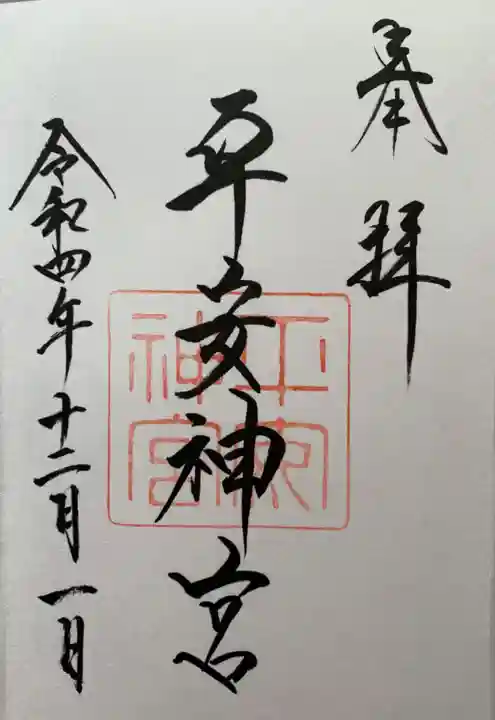 奉拝
平安神宮
令和四年十二月一日
平安神宮